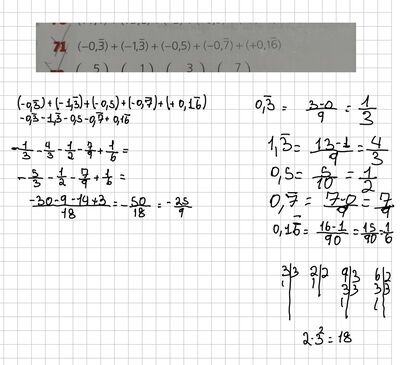 71 (-0,3̅) + (-1,3̅) + (-0,5) + (-0,7̅) + (+0,16̅)
(-0,3̅) + (-1,3̅) + (-0,5) + (-0,7̅) + (+0,16̅)
-0,3̅ - 1,3̅ - 0,5 - 0,7̅ + 0,16̅
- 1/3 - 4/3 - 1/2 - 7/9 + 1/6 =
- 5/3 - 1/2 - 7/9 + 1/6 =
(-30-9-14+3)/18 = - 50/18 = - 25/9
0,3̅ = (3-0)/9 = 1/3
1,3̅ = (13-1)/9 = 4/3
0,5 = 5/10 = 1/2
0,7̅ = (7-0)/9 = 7/9
0,16̅ = (16-1)/90 = 15/90 = 1/6
3|3 2|2 9|3 6|2
1| 1| 3|3 3|3
1| 1|
2·3² = 18